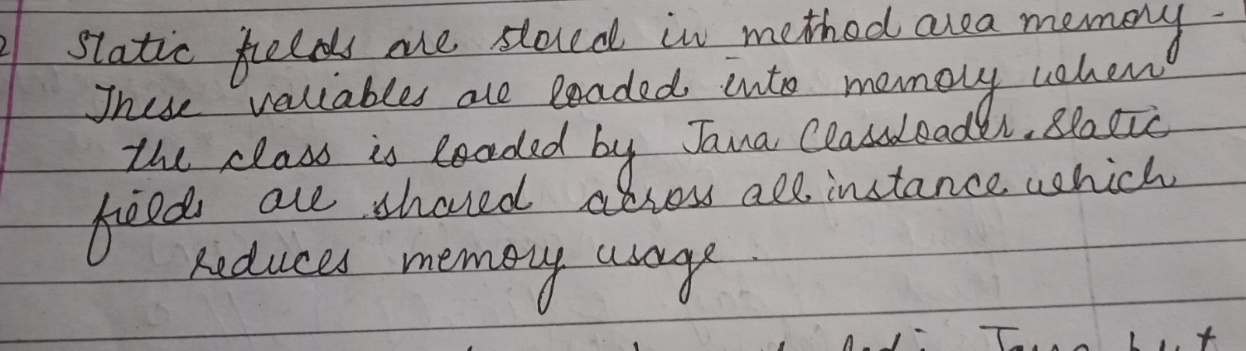 2 Static fields are stored in method area memory.
These variables are loaded into memory when
the class is loaded by Java Classloader. Static
fields are shared across all instance which
reduces memory usage.
Java but